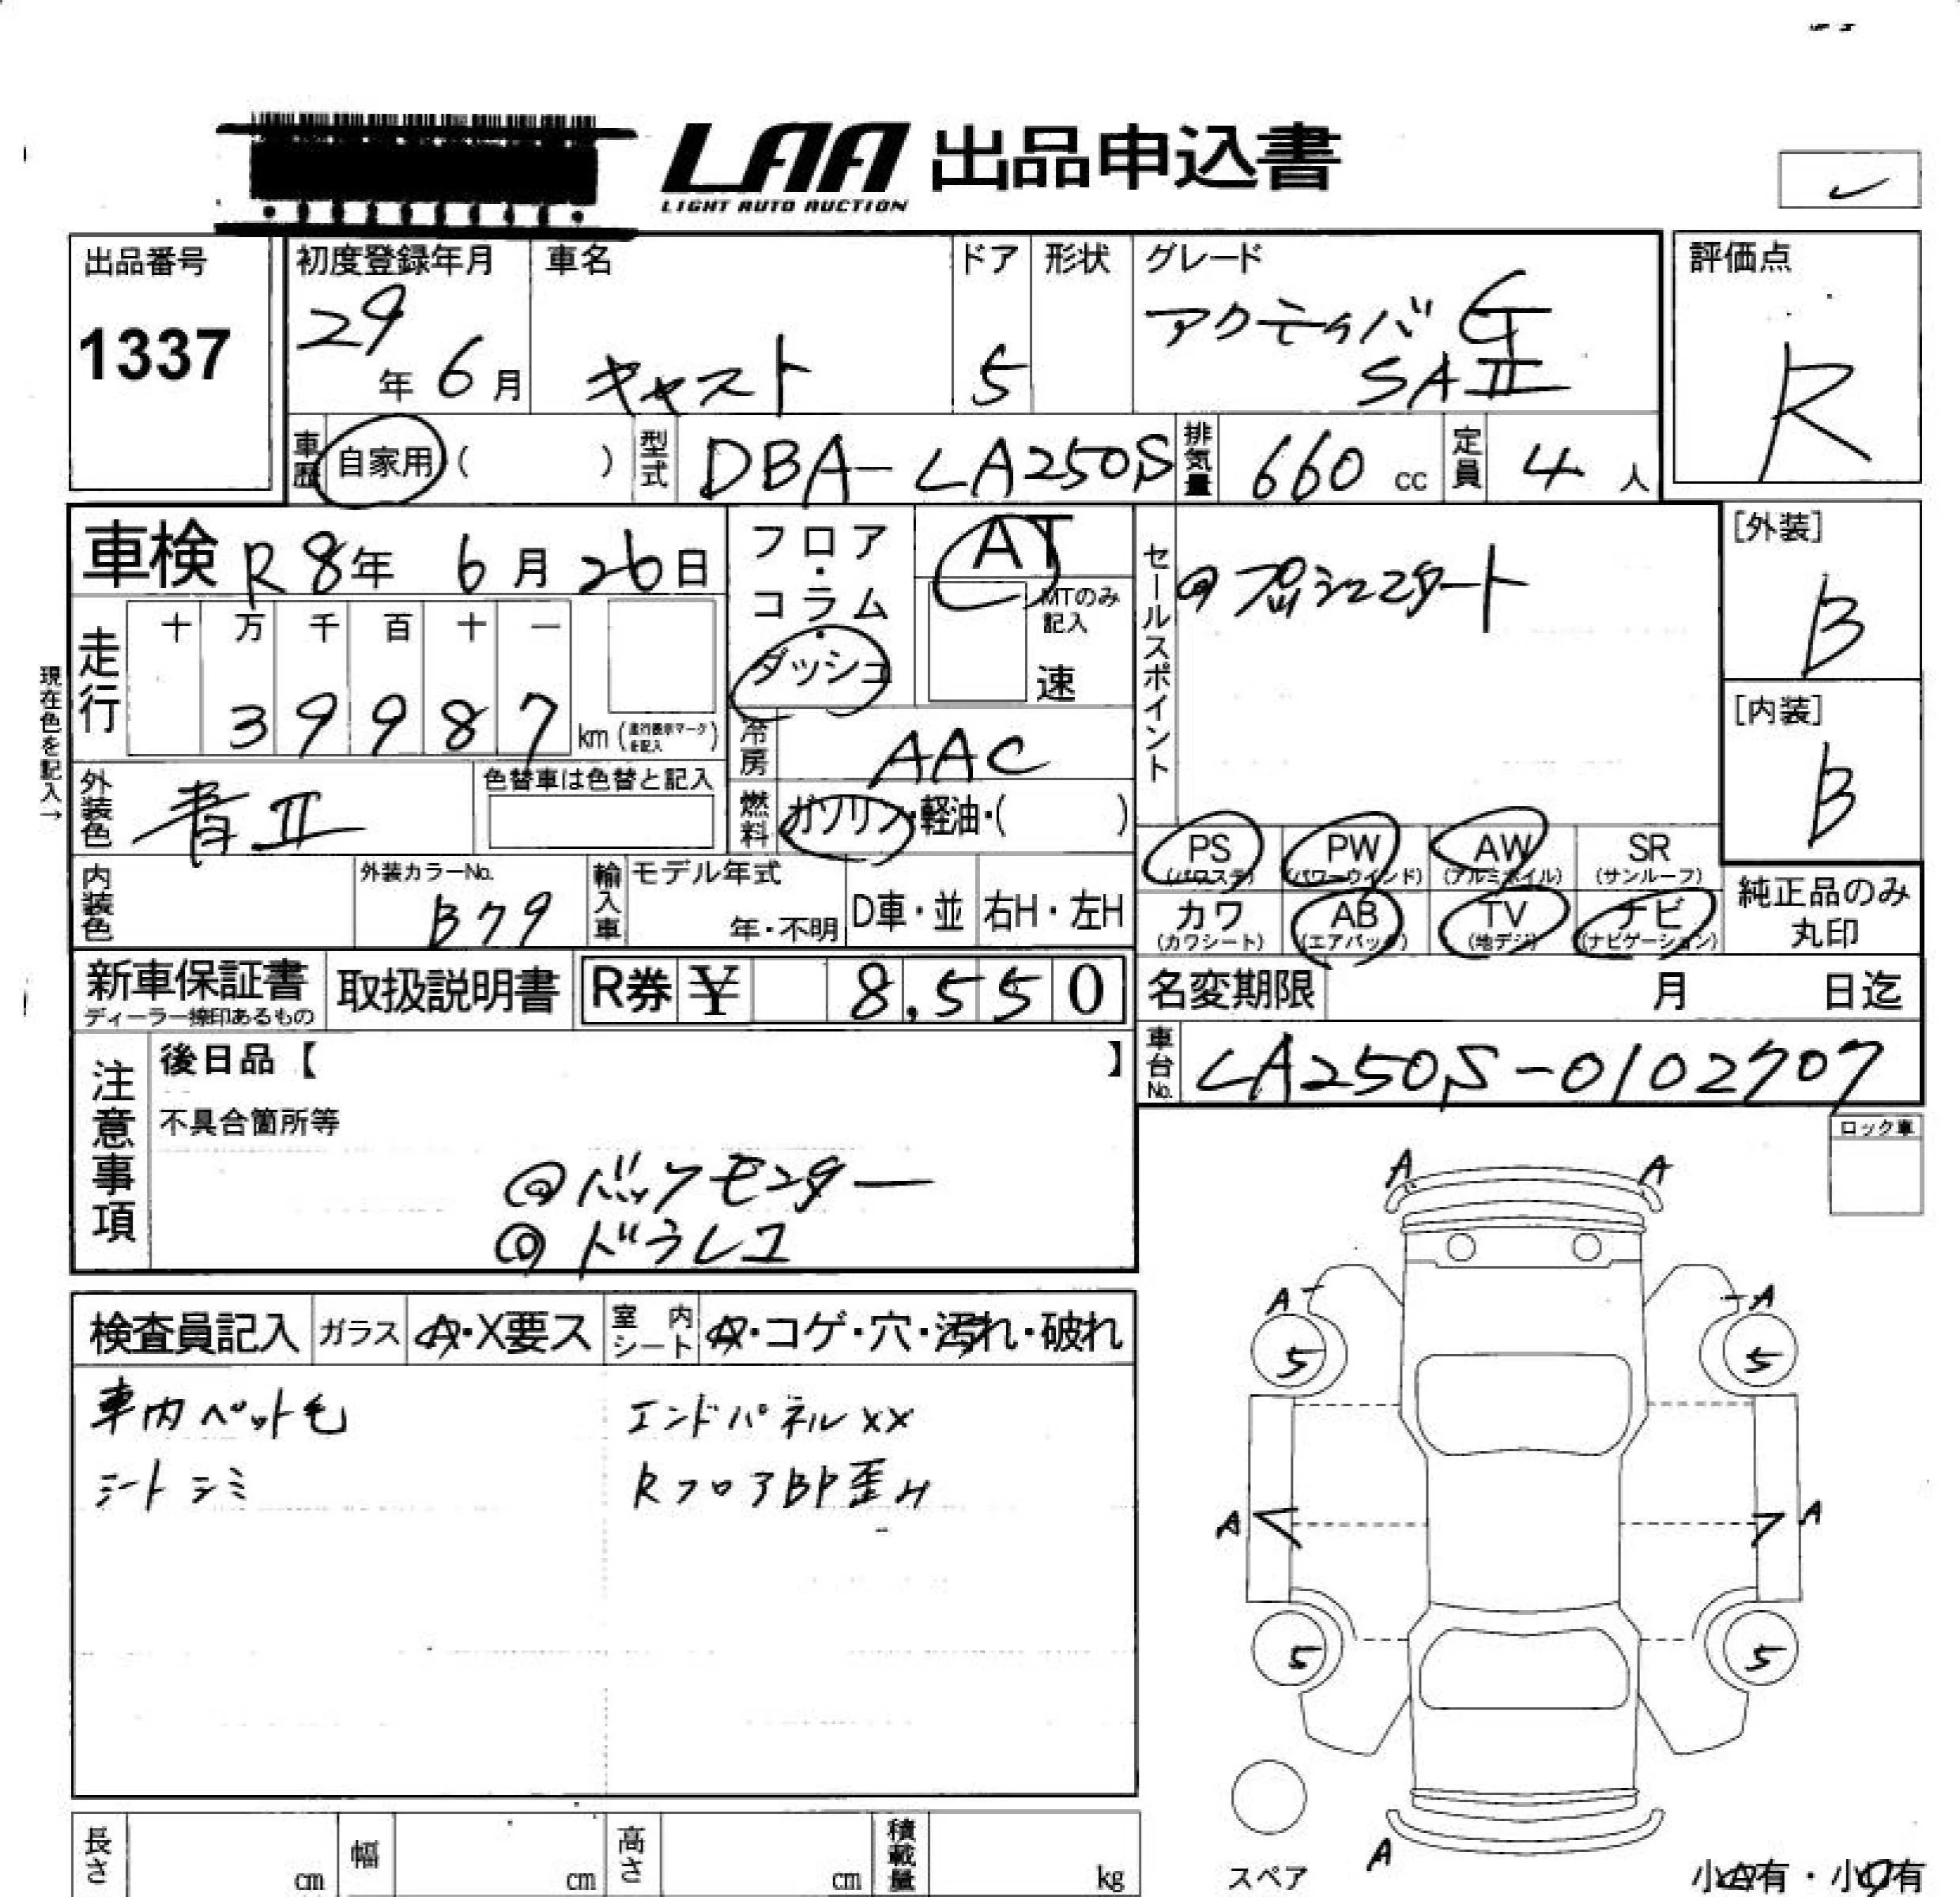 LAA 出品申込書
LIGHT AUTO AUCTION
出品番号
1337
初度登録年月
29年 6月
車名
キャスト
ドア
5
形状
グレード
アクティバ G
SAⅡ
評価点
R
車歴 自家用 ( )
型式 DBA-LA250S
排気量 660 cc
定員 4 人
車検 R8年 6月 26日
フロア・コラム・ダッシュ
AT
MTのみ記入
速
セールスポイント
◎プッシュスタート
[外装]
B
[内装]
B
現在色を記入→
走行
十 万 千 百 十 一
3 9 9 8 7 km (走行表示マークを記入)
冷房 AAC
外装色 青Ⅱ
色替車は色替と記入
燃料 ガソリン・軽油・( )
PS (パワステ)
PW (パワーウインド)
AW (アルミホイル)
SR (サンルーフ)
カワ (カワシート)
AB (エアバック)
TV (地デジ)
ナビ (ナビゲーション)
純正品のみ丸印
内装色
外装カラーNo.
B79
輸入車 モデル年式
年・不明
D車・並
右H・左H
新車保証書
ディーラー捺印あるもの
取扱説明書
R券 ¥ 8,550
名変期限 月 日迄
車台No. LA250S-0102707
注意事項
後日品【 】
不具合箇所等
◎バックモニター
◎ドラレコ
ロック車
検査員記入
ガラス A・X要ス
室内シート A・コゲ・穴・汚れ・破れ
車内ペット毛
シートシミ
エンドパネルXX
RフロアBP歪み
A A
A A
5 5
A A
5 5
A
スペア
小A有・小U有
長さ cm
幅 cm
高さ cm
積載量 kg